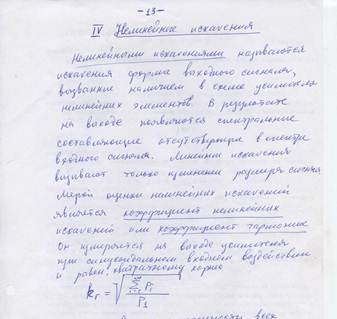 - 13 -
IV Нелинейные искажения
Нелинейными искажениями называются
искажения формы выходного сигнала,
вызванные наличием в схеме усилителя
нелинейных элементов. В результате
на выходе появляются спектральные
составляющие отсутствующие в спектре
входного сигнала. Линейные искажения
вызывают только изменения размера сигнала
Мерой оценки нелинейных искажений
является коэффициент нелинейных
искажений или коэффициент гармоник
Он измеряется на выходе усилителя
при синусоидальном входном воздействии
и равен квадратному корню